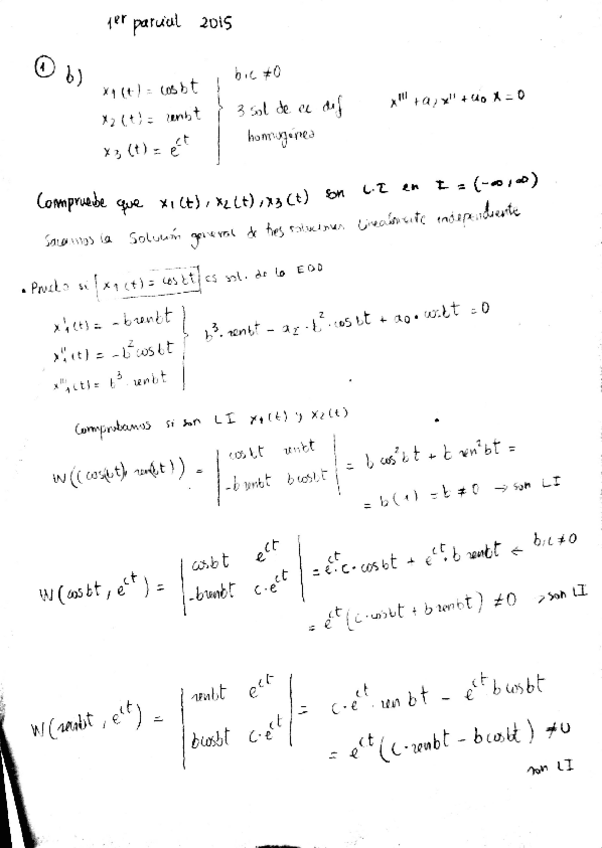 1er parcial 2015
① b)
x1(t) = cosbt
x2(t) = senbt
x3(t) = e^ct
b,c ≠0
3 sol de ec dif
homogénea
x''' + a2x'' + a0 x = 0
Compruebe que x1(t), x2(t), x3(t) son L.I en I = (-∞,∞)
Sacamos la Solución general de tres soluciones linealmente independiente
• Pruebo si x1(t) = cosbt es sol. de la EDO
x'1(t) = -bsenbt
x''1(t) = -b²cosbt
x'''1(t) = b³·senbt
b³·senbt - a2·b²·cosbt + a0·cosbt = 0
Comprobamos si son LI x1(t) y x2(t)
W((cosbt), sen(bt)) = | cosbt senbt | = b cos²bt + b sen²bt =
| -bsenbt bcosbt |
= b(1) = b ≠ 0 → son LI
W(cosbt, e^ct) = | cosbt e^ct | = e^ct·c·cosbt + e^ct·b senbt ← b,c≠0
| -bsenbt c·e^ct |
= e^ct(c·cosbt + bsenbt) ≠0 → son LI
W(senbt, e^ct) = | senbt e^ct | = c·e^ct·sen bt - e^ct bcosbt
| bcosbt c·e^ct |
= e^ct(c·senbt - bcosbt) ≠0
son LI